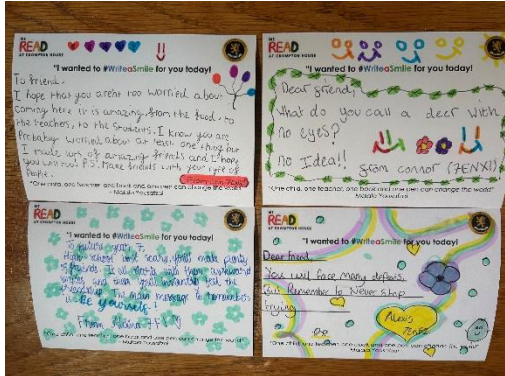 WE
READ
AT CROMPTON HOUSE
"I wanted to #WriteaSmile for you today!
To friend,
I hope that you arent too worried about
coming here it is amazing, from the food, to
the teachers, to the students. I know you are
Probably worried about at least one thing but
I made lots of amazing friends and I hope
you will too! P.S. Make friends with your type of
People.
"One child, one teacher, one book and one pen can change the world"
- Malala Yousafzai
WE
READ
AT CROMPTON HOUSE
"I wanted to #WriteaSmile for you today!
Dear friend,
What do you call a deer with
no eyes?
no Idea!!
from connor (7ENX1)
"One child, one teacher, one book and one pen can change the world"
Malala Yousafzai
WE
READ
AT CROMPTON HOUSE
"I wanted to #WriteaSmile for you today!
To future year 7,
High school isnt scary, you'll make plenty
of friends.
The main message to remember
is Be yourself!
From
"One child, one teacher, one book and one pen can change the world"
- Malala Yousafzai
WE
READ
AT CROMPTON HOUSE
"I wanted to #WriteaSmile for you today!
Dear friend,
You will face many defeats
But Remember to Never stop
trying
Alexis
"One child, one teacher, one book and one pen can change the world"
Malala Yousafzai